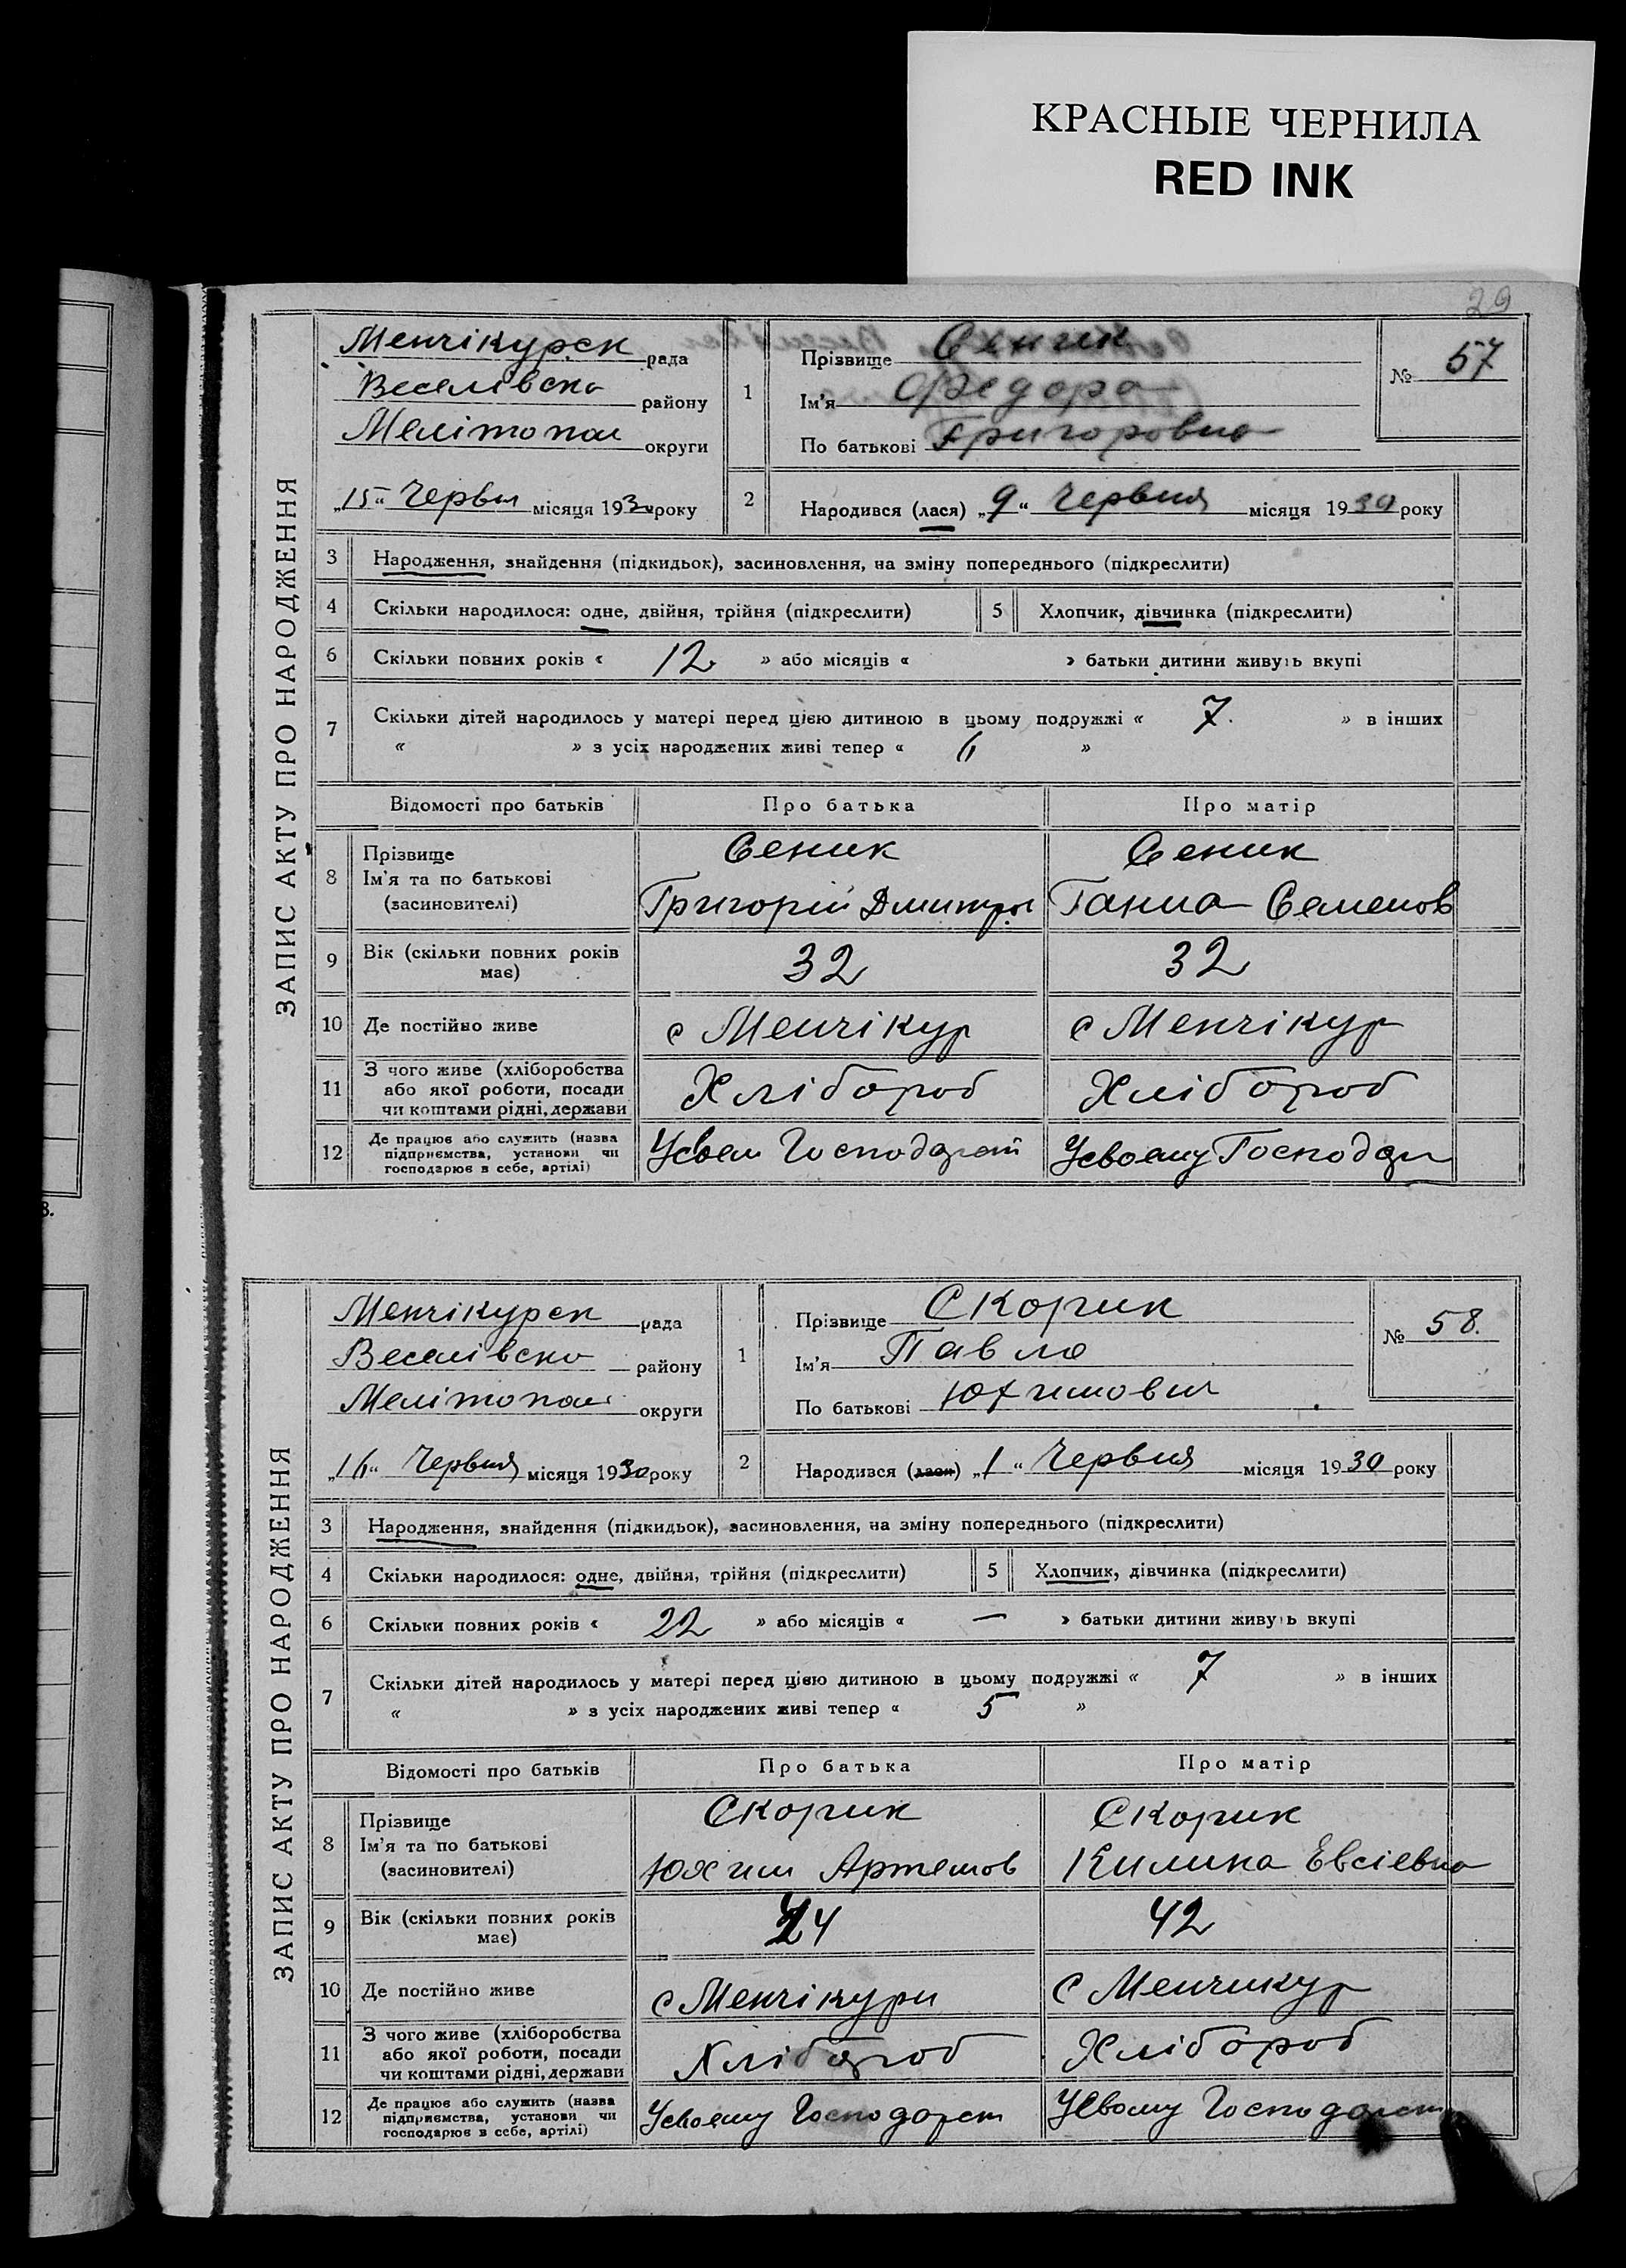 КРАСНЫЕ ЧЕРНИЛА
RED INK
29
ЗАПИС АКТУ ПРО НАРОДЖЕННЯ
Менчікурск рада
Веселівско району
Мелітопол округи
„15“ Червн місяця 1930 року
1
Прізвище Сеник
Ім'я Федора
По батькові Григоровна
№ 57
2 Народився (лася) „9“ Червня місяця 1930 року
3 Народження, знайдення (підкидьок), засиновлення, на зміну попереднього (підкреслити)
4 Скільки народилося: одне, двійня, трійня (підкреслити) 5 Хлопчик, дівчинка (підкреслити)
6 Скільки повних років « 12 » або місяців « » батьки дитини живуть вкупі
7 Скільки дітей народилось у матері перед цією дитиною в цьому подружжі « 7 » в інших
« » з усіх народжених живі тепер « 6 »
Відомості про батьків Про батька Про матір
8 Прізвище Сеник Сеник
Ім'я та по батькові
(засиновителі) Григорій Дмитро Ганна Семенов
9 Вік (скільки повних років має) 32 32
10 Де постійно живе с Менчікур с Менчікур
11 З чого живе (хліборобства
або якої роботи, посади
чи коштами рідні, держави Хлібороб Хлібороб
12 Де працює або служить (назва
підприємства, установи чи
господарює в себе, артілі) Усвоем Господарст Усвоему Господар
ЗАПИС АКТУ ПРО НАРОДЖЕННЯ
Менчікурск рада
Веселівско району
Мелітопол округи
„16“ Червня місяця 1930 року
1
Прізвище Скорик
Ім'я Павло
По батькові Юхимович
№ 58.
2 Народився (лася) „1“ Червня місяця 1930 року
3 Народження, знайдення (підкидьок), засиновлення, на зміну попереднього (підкреслити)
4 Скільки народилося: одне, двійня, трійня (підкреслити) 5 Хлопчик, дівчинка (підкреслити)
6 Скільки повних років « 22 » або місяців « — » батьки дитини живуть вкупі
7 Скільки дітей народилось у матері перед цією дитиною в цьому подружжі « 7 » в інших
« » з усіх народжених живі тепер « 5 »
Відомості про батьків Про батька Про матір
8 Прізвище Скорик Скорик
Ім'я та по батькові
(засиновителі) Юхим Артемов Килина Евсіевна
9 Вік (скільки повних років має) 44 42
10 Де постійно живе с Менчікури с Менчикур
11 З чого живе (хліборобства
або якої роботи, посади
чи коштами рідні, держави Хлібороб Хлібороб
12 Де працює або служить (назва
підприємства, установи чи
господарює в себе, артілі) Усвоему Господарст Усвому Господарст